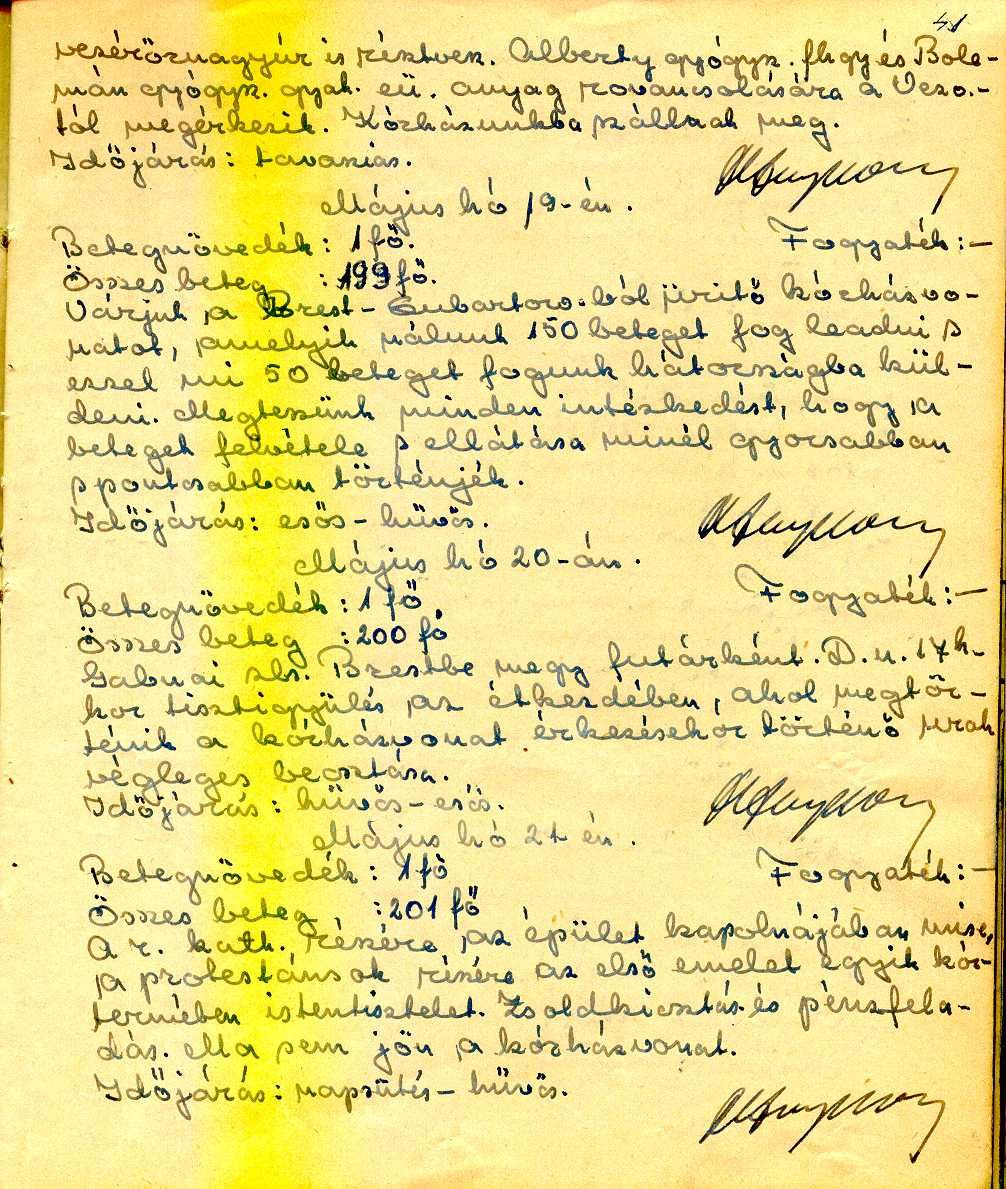 41
vezérőrnagyúr is résztvesz. Alberty gyógysz. fhgy és Bole-
mán gyógysz. gyak. eü. anyag rovancsolására a Vezo.-
tól megérkezik. Kórházunkba szállnak meg.
Időjárás: tavaszias.
Május hó 19-én.
Betegnövedék: 1 fő. Fogyaték: —
Összes beteg : 199 fő.
Várjuk a Brest-Lubartow-ból ürítő kórházvo-
natot, amelyik nálunk 150 beteget fog leadni s
ezzel mi 50 beteget fogunk hátországba kül-
deni. Megteszünk minden intézkedést, hogy a
beteget felvétele s ellátása minél gyorsabban
s pontosabban történjék.
Időjárás: esős - hűvös.
Május hó 20-án.
Betegnövedék: 1 fő Fogyaték: —
Összes beteg : 200 fő
Gabnai szks. Brestbe megy futárként. D.u. 17h-
kor tisztigyülés az étkezdében, ahol megtör-
ténik a kórházvonat érkezésekor történő urak
végleges beosztása.
Időjárás: hűvös - esős.
Május hó 21 én.
Betegnövedék: 1 fő Fogyaték: —
Összes beteg : 201 fő
A r. kath. részére az épület kapolnájában mise,
a protestánsok részére az első emelet egyik kór-
termében istentisztelet. Zsoldkiosztás és pénzfela-
dás. Ma sem jön a kórházvonat.
Időjárás: napsütés - hűvös.